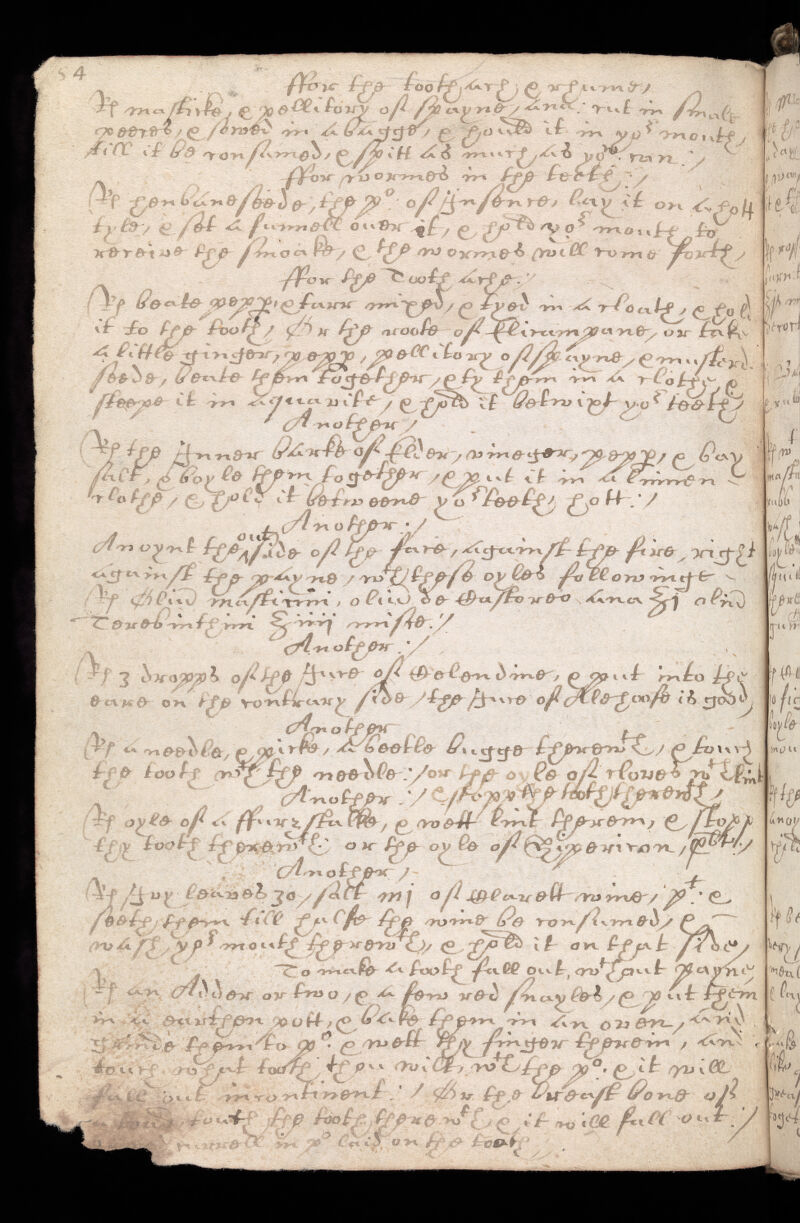 54
ffor the tooth ach, & rhume,
Rx mastike, & pellitory of spayne, ana: cut in small
peeces, & sowed in a bagge, & hould it in yor mouth,
till it be consumed, & spitt as much, as you can:/
ffor wormes in the teeth:/
Rx henbaneseede, the po of Insence, lay it on a hott
tyle, & set a funnell over it, & hold yor mouth, to
receive the smoake, & the wormes will come forth,
ffor the Tooth ache:/
Rx beate pepp, & tarr mixed, & tyed in a cloath, & hold
it to the tooth, Or the roote of Elicampane, or take
a little ginger, pepp, pellitory of spayne, & musterd
seede, beate them together, & ty them in a clothe, &
steepe it in aquavite, & hold it betwixt yor teeth,
Another,
Rx the Inner barke of Elder, vineger, pepp, & bay
salt, & boyle them together, & put it in a linnen
clothe, & hold it betweene yor teeth, hott:/
Another:/
Anoynt the out side of the face, against the fire, right
against the payne, wth these oyles followinge
Rx mastic de Castoreo ana ℥j
Terebinthini ℥iiij misce:/
Another:/
Rx 3 dropps of the Iuce of Celendine, & put into the
eare on the contrary side, the Iuce of Alehoofe is good,
Another
Rx a needle, & pricke, a beetle bugge therewth, & touch
the tooth wth the needle:/ or the oyle of cloves wth lint
Another:/ & stopp the tooth therewth,
Rx oyle of a ffurz stalke, & wett lint therein, & stopp
thy tooth therewth: or the oyle of Hipericon, pbt:/
Another,
Rx Ivy leaves 30, salt mj of Clarett wine, pt: &
seeth them till halfe the wine be consumed, &
wash yor mouth therewth, & hold it on that side,
To make a tooth fall out, wthout payne,
Rx an Adder or two, & a few red snayles, & put them
in a earthen pott, & bake them in an oven, and
grinde them to po: & wett thy finger therein, and
touch what tooth thou wilt, wth the po: & it will
fall out incontinent:/ Or the breast bone of
a toad, touch the tooth therewth, & it will fall out:/
in po laid on the tooth,